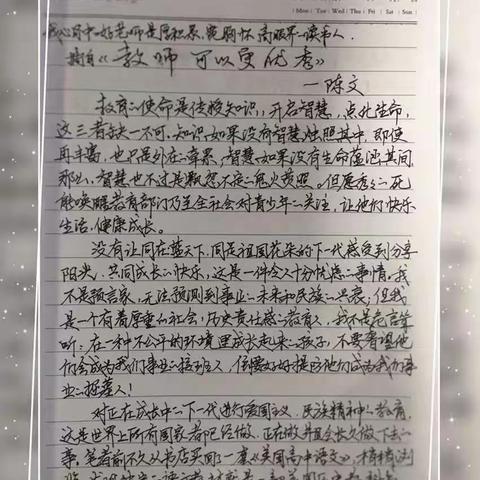 Mon. / Tue. / Wed. / Thu. / Fri. / Sat. / Sun.
我心目中好老师是厚积累、宽胸怀、高眼界、读书人.
摘自《教师 可以更优秀》
—陈文
教育的使命是传授知识,开启智慧,点化生命,
这三者缺一不可.知识如果没有智慧烛照其中,即使
再丰富,也只是外在的牵累,智慧如果没有生命蕴涵其间
那么,智慧也不过是飘忽不定的鬼火荧照。但愿秀之死
能唤醒教育部门乃至全社会对青少年的关注,让他们快乐
生活,健康成长。
没有让同在蓝天下,同是祖国花朵的下一代感受到分享
阳光,共同成长的快乐,这是一件令人十分忧虑的事情.我
不是预言家,无法预测到事业的未来和民族的兴衰,但我
是一个有着厚重的社会,历史责任感的教育人,我不是危言耸
听,在一种不公平的环境里成长起来的孩子,不要希望他
们会成为我们事业的接班人,倒要好好提防他们成为我们事
业的掘墓人!
对正在成长中的下一代进行爱国主义、民族精神的教育,
这是世界上所有国家都已经做,正在做并且会长久做下去的
事.笔者前不久从书店买回了一套《美国高中语文》,